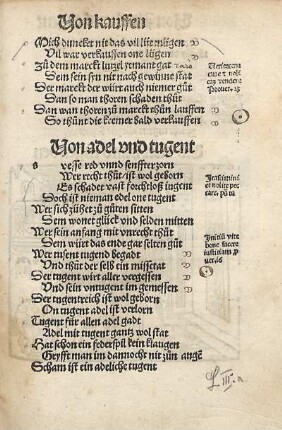 Von kauffen
Mich duncket nit das vil lüt mügen
Vil war verkauffen one lügen
Zů dem marckt lutzel yemant gat
Dem sein syn nit nach gewinne stat
Der marckt der würt auch niemer gůt
Dan so man thoren schaden thůt
Dan wan thoren zů marckt thůn lauffen
So thůnt die kremer bald verkauffen
Von adel vnd tugent
vesse red vnnd senffter zorn
Wer recht thůt ist wol geborn
Es schadet vast forchtloß iugent
Doch ist nieman edel one tugent
Wer sich zühet zů gůten sitten
Dem wonet glück vnd selden mitten
Wer sein anfang mit vnrecht thůt
Dem würt das ende gar selten gůt
Wer tusent tugend begadt
Und thůt der selb ein missetat
Der tugent wirt aller vergessen
Und sein vntugent im gemessen
Der tugentreich ist wol geborn
On tugent adel ist verlorn
Tugent für allen adel gadt
Adel mit tugent gantz wol stat
Hat schon ein federspil kein klauwen
Scham ist ein adeliche tugent
L. III. a